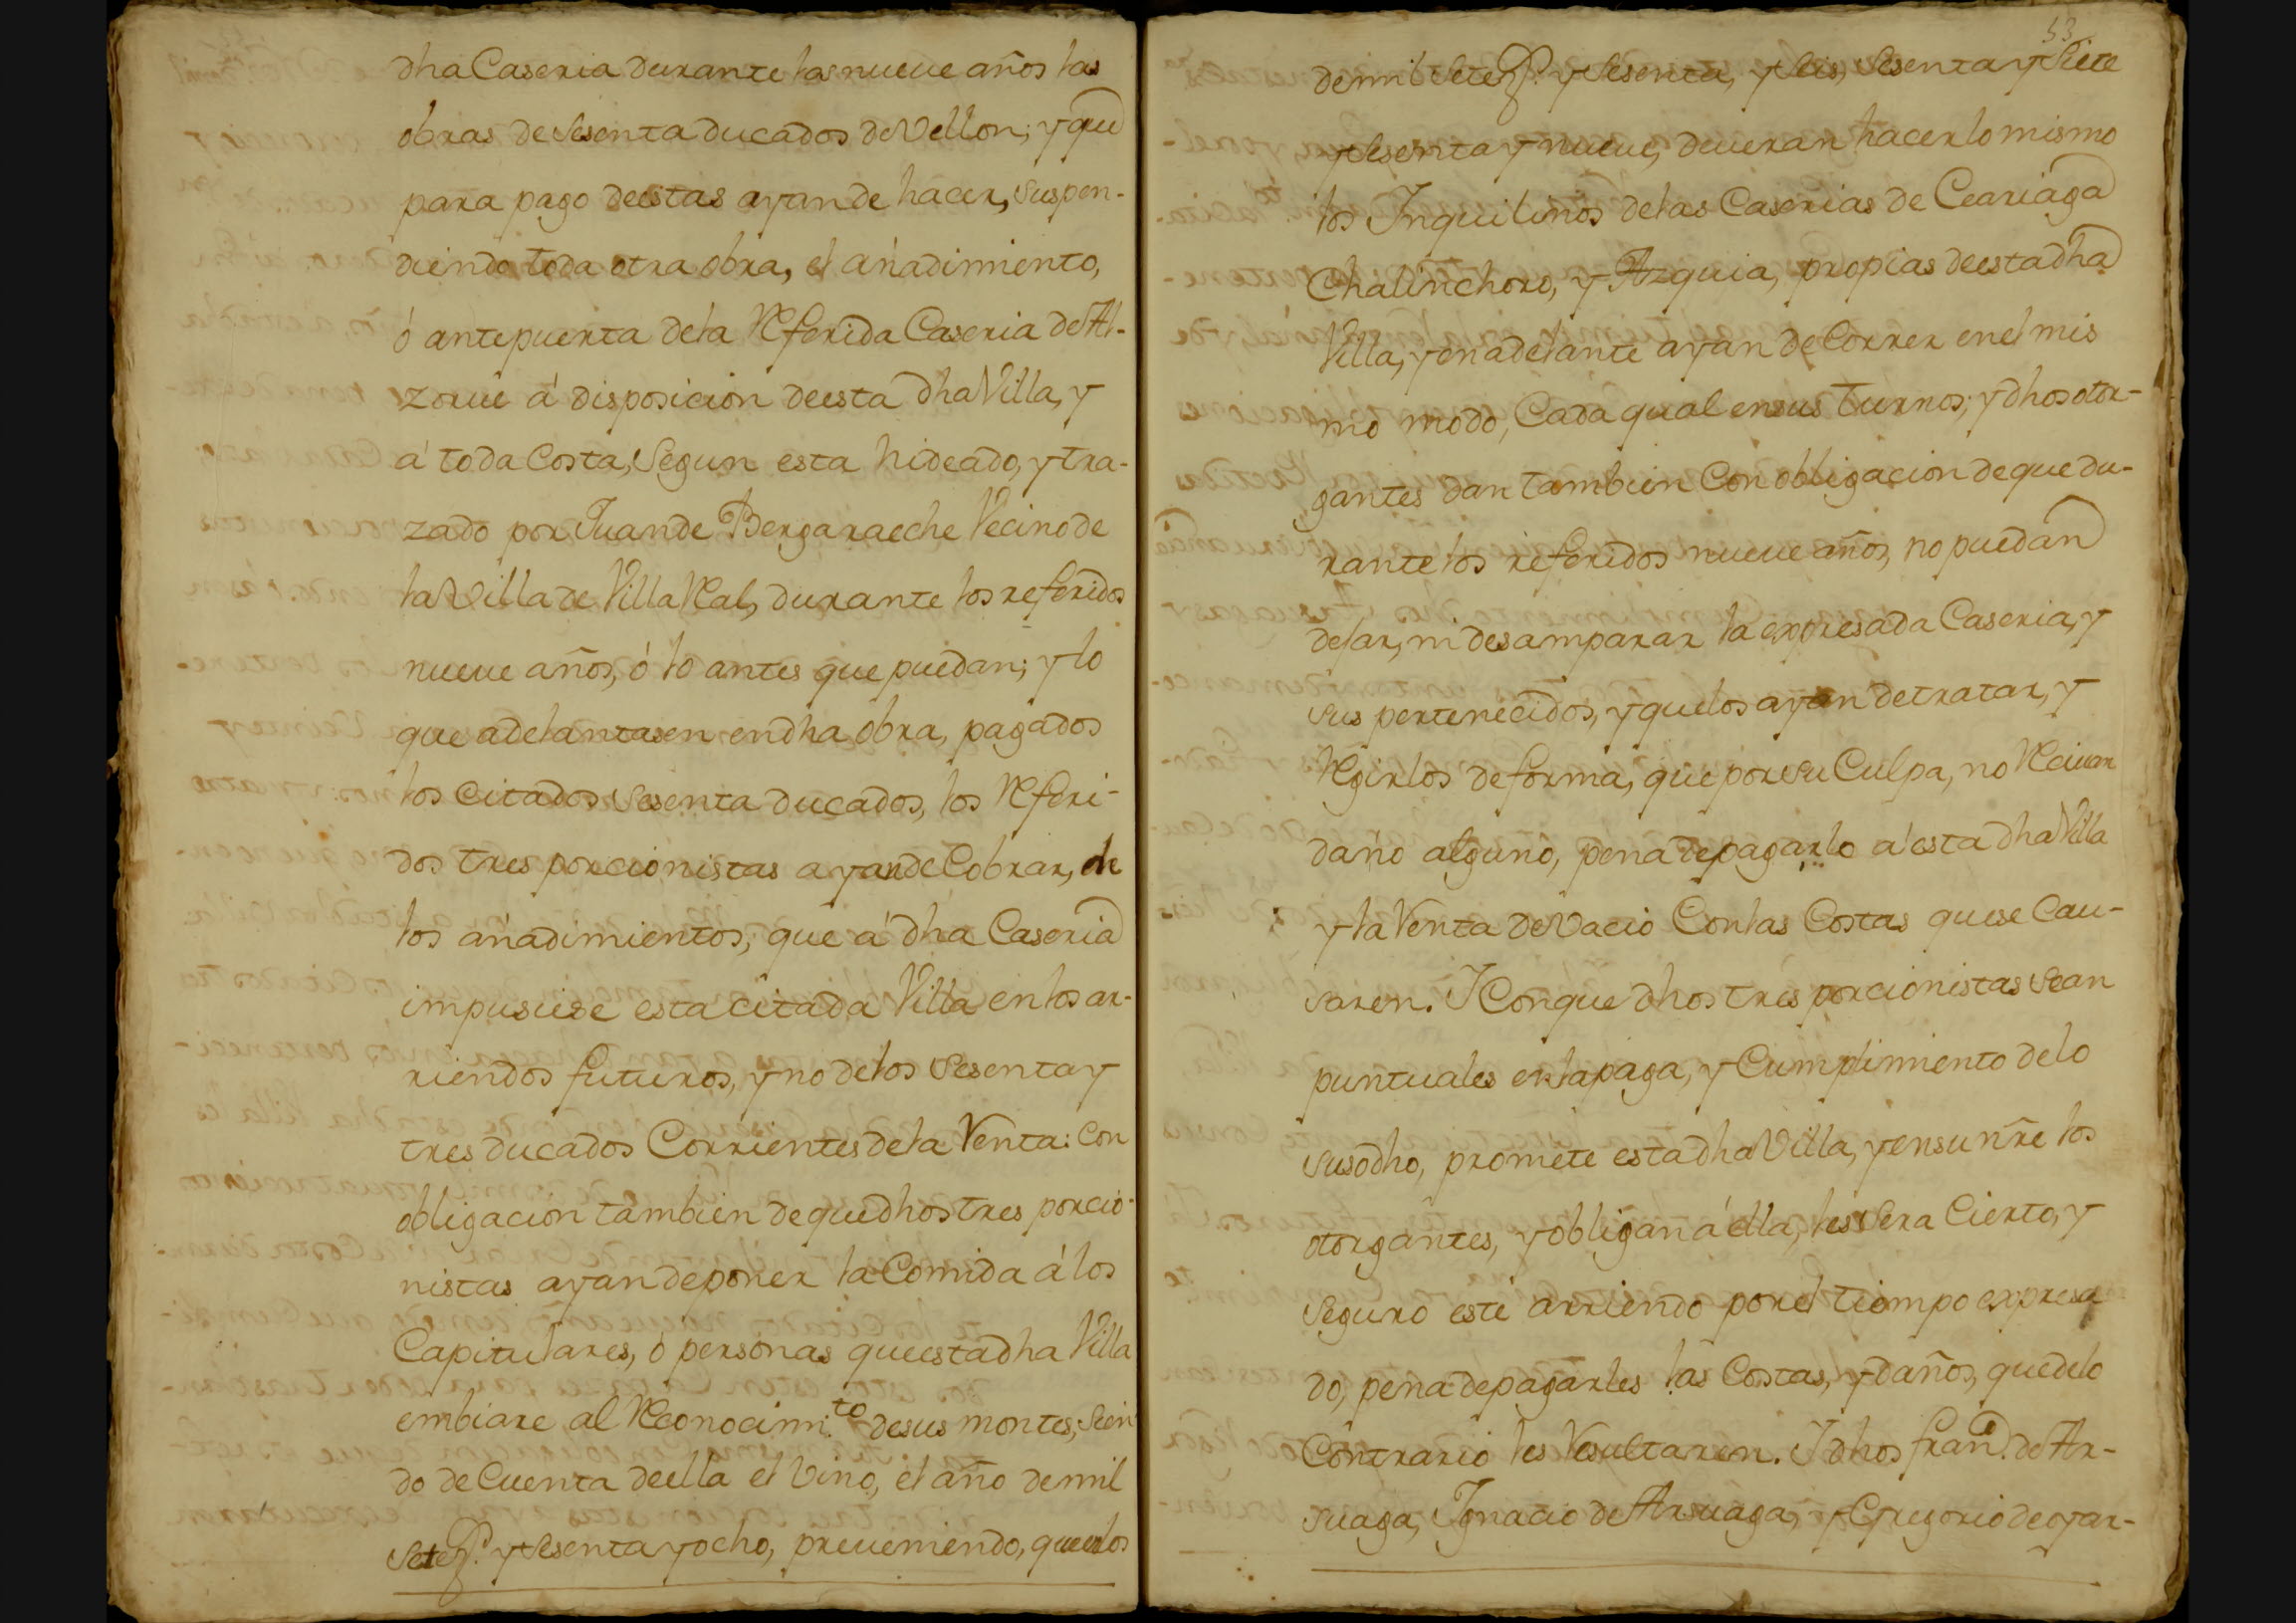 dha Caseria durante los nueue años las
obras de Sesenta ducados de Vellon; y que
para pago de estas ayan de hacer, suspen-
diendo toda otra obra, el añadimiento,
ó antepuerta de la Referida Caseria de Al-
zorue á disposicion de esta dha Villa, y
á toda Costa, Segun esta hideado, y tra-
zado por Juan de Bergaraeche Vecino de
la Villa de Villa Real, durante los referidos
nueue años, ó lo antes que puedan; y lo
que adelantasen en dha obra, pagados
los citados Sesenta ducados, los Referi-
dos tres porcionistas ayan de Cobrar, de
los añadimientos, que á dha Caseria
impusiese esta citada Villa en los ar-
riendos futuros, y no de los Sesenta y
tres ducados Corrientes de la Venta: con
obligacion tambien de que dhos tres porcio-
nistas ayan de poner la Comida á los
Capitulares, ó personas que esta dha Villa
embiare al Reconocim.to de sus montes, Sien
do de Cuenta de ella el Vino, el año de mil
Setez.s y Sesenta y ocho, preueniendo, que en los
53
de mil Setez.s y Sesenta, y Seis, Sesenta y Siete
y Sesenta y nueue, deueran hacer lo mismo
los Inquilinos de las Caserias de Ceariaga
Chalinchoro, y Azquia, propias de esta dha
Villa, y en adelante ayan de Correr en el mis
mo modo, Cada qual en sus turnos; y dhos otor-
gantes dan tambien Con obligacion de que du-
rante los referidos nueue años, no puedan
dejar, ni desamparar la expresada Caseria, y
sus pertenecidos, y que los ayan de tratar, y
Regirlos de forma, que por su Culpa, no Reciuan
daño alguno, pena de pagarlo a esta dha Villa
y la Venta de Vacio Con las Costas que se Cau-
saren. I Con que dhos tres porcionistas Sean
puntuales en la paga, y Cumplimiento de lo
susodho, promete esta dha Villa, y en su nre los
otorgantes, y obligan á ella, les Sera Cierto, y
Seguro este arriendo por el tiempo expresa
do, pena de pagarles las Costas, y daños, que de lo
Contrario les Resultaren. I dhos fran.co de Ar-
suaga, Ignacio de Arsuaga, y Gregorio de oyar-